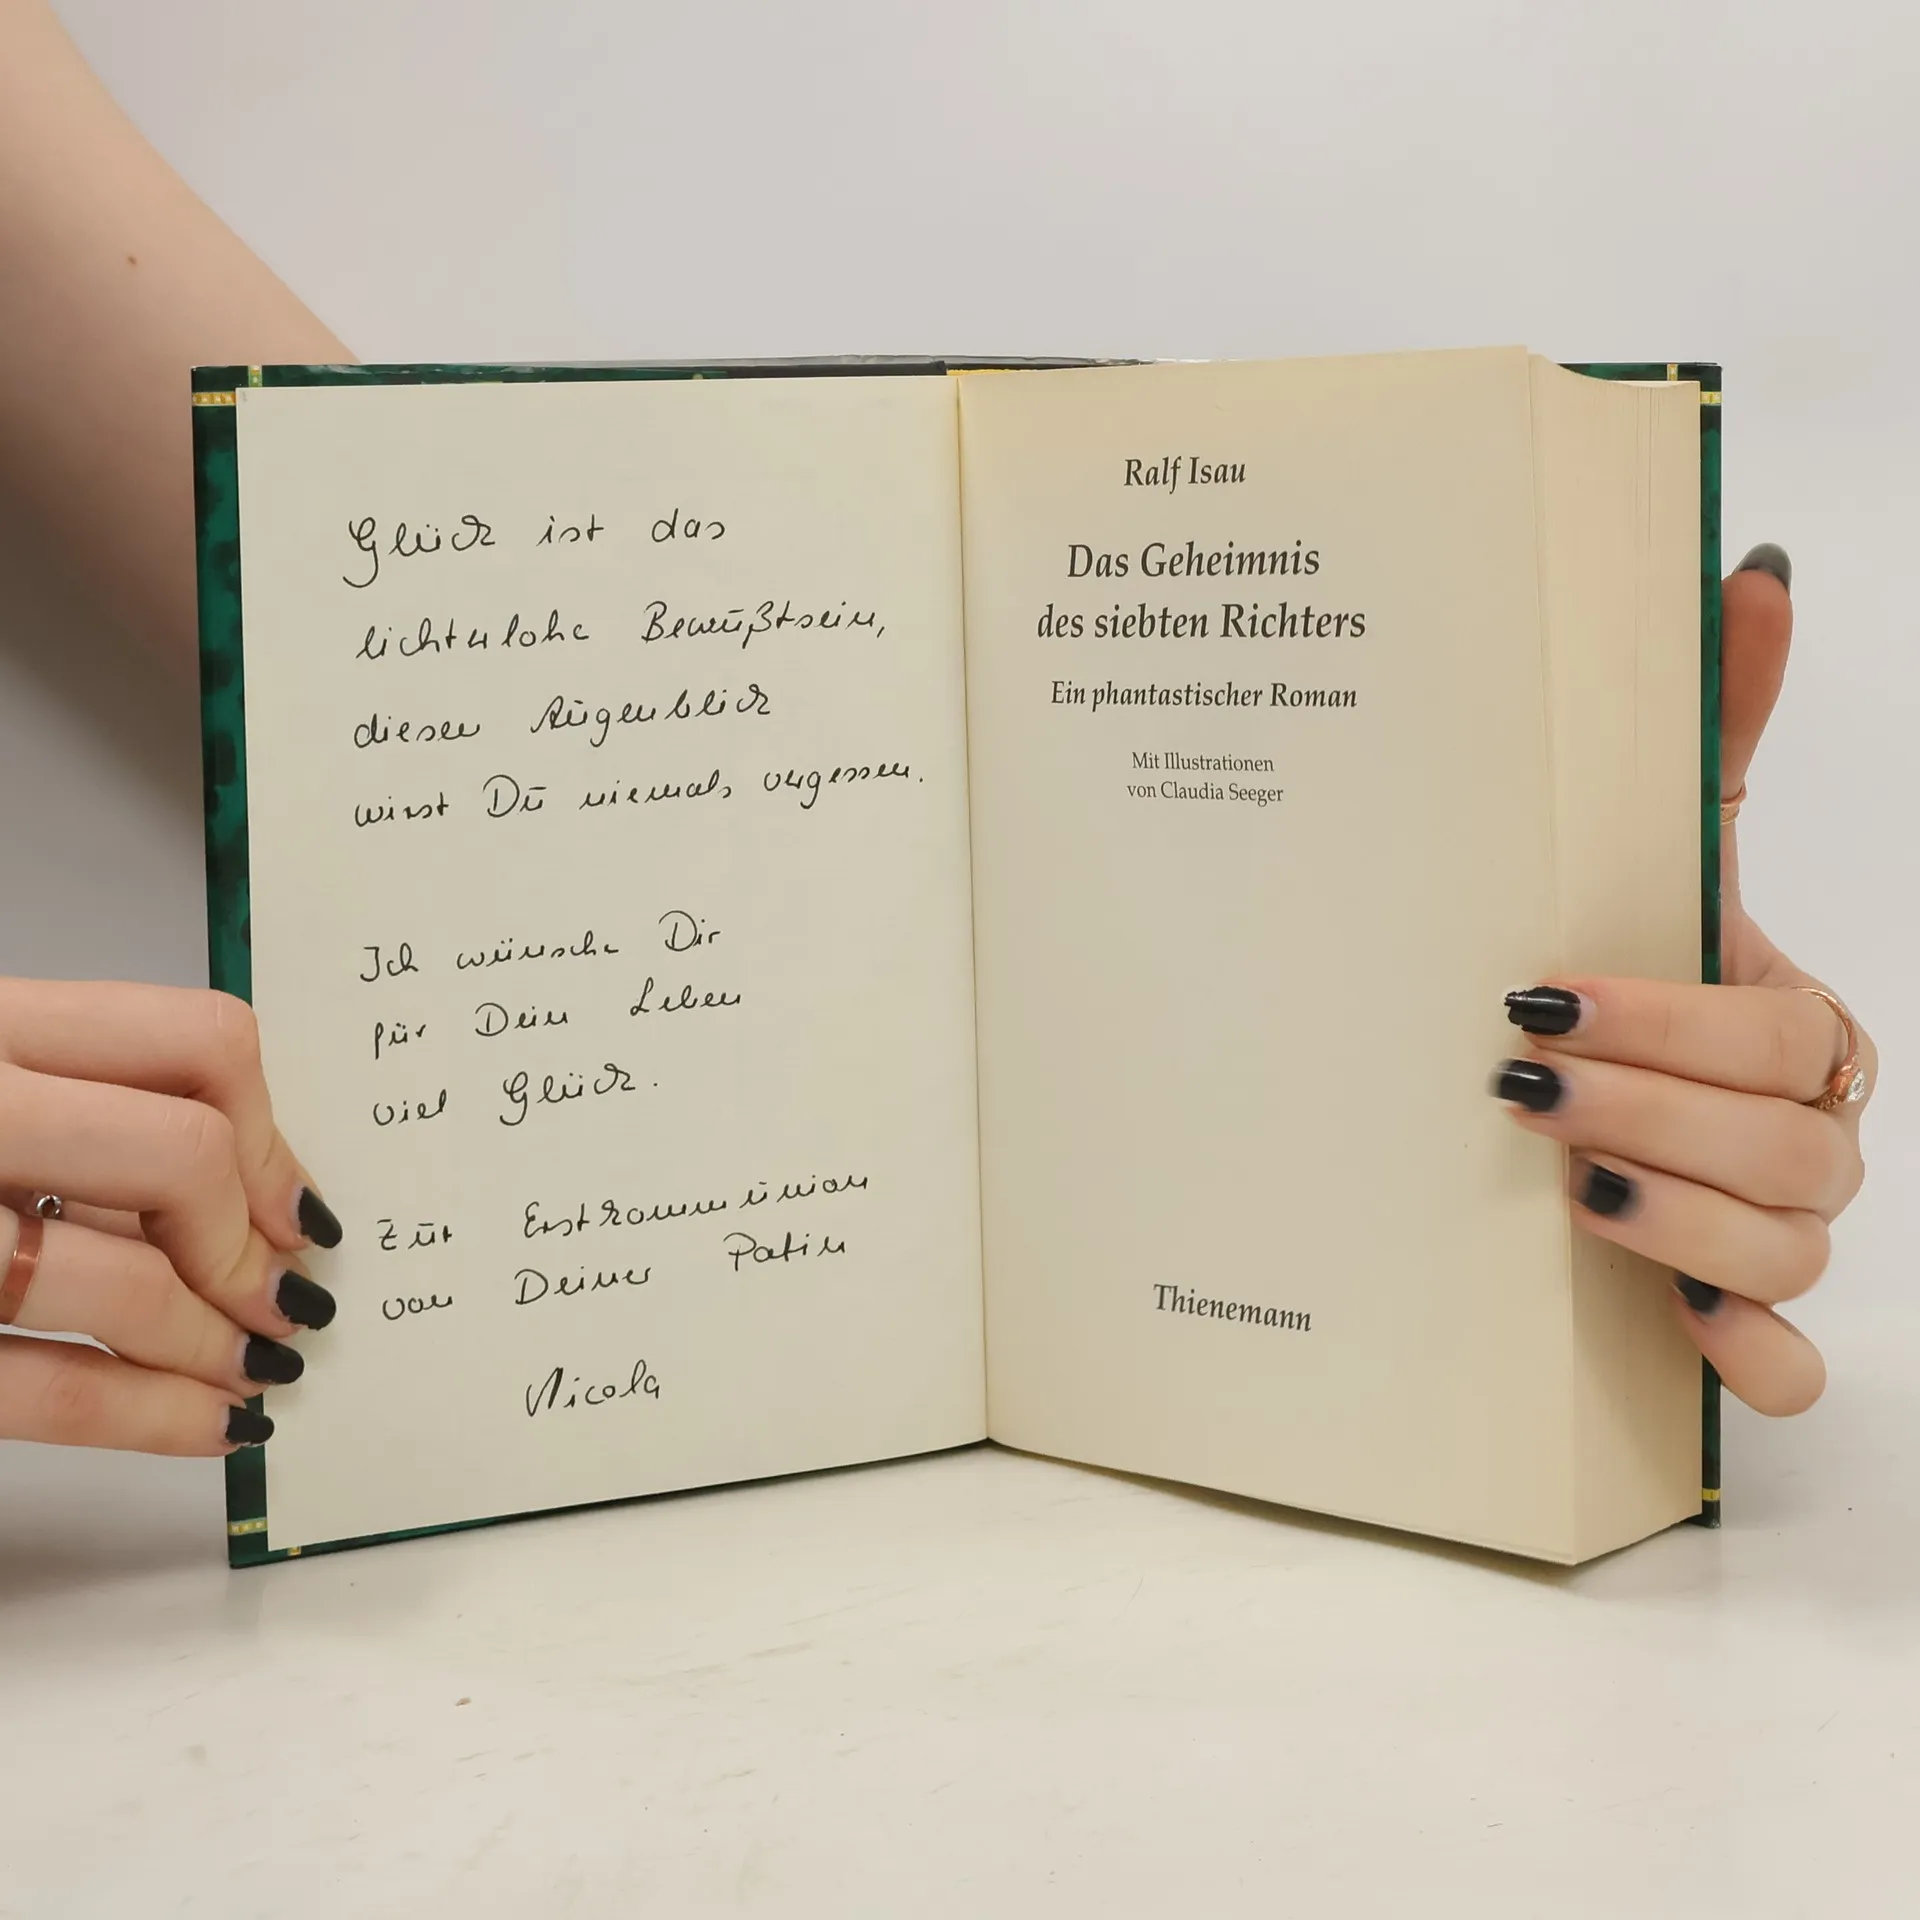 Glück ist das
lichterlohe Bewußtsein,
diesen Augenblick
wirst Du niemals vergessen.
Ich wünsche Dir
für Dein Leben
viel Glück.
Zur Erstkommunion
von Deiner Patin
Nicola
Ralf Isau
Das Geheimnis
des siebten Richters
Ein phantastischer Roman
Mit Illustrationen
von Claudia Seeger
Thienemann